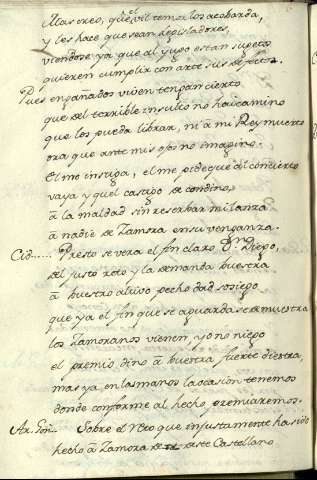 Mas creo, que el vil temor los acobarda,
y les hace que sean Regidores,
viendose ya que al yugo estan sugetos
quieren cumplir con arte sus defetos.
Pues engañados viven ten por cierto
que del terrible insulto no hai camino
que los pueda librar, ni a mi Rey muerto
ora que ante mis ojos no imagino.
El me instiga, el me pide que al concierto
vaya y que el castigo de condino,
a la maldad sin reserbar mi lanza
a nadie de Zamora en su venganza.
Cid..... Presto se vera el fin claro Dn. Diego,
del justo reto y la demanda buestra
a buestro altivo pecho dad sosiego
que ya el fin que se aguarda se muestra
los Zamoranos vienen, yo no niego
el premio, dino a buestra fuerte diestra,
mas ya, en las manos la ocasión tenemos
donde conforme al hecho, premiaremos.
Ar. Gon. Sobre el reto que injustamente ha sido
hecho a Zamora de este Castellano